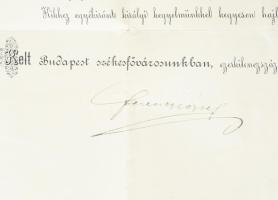 Kihez egyébiránt királyi kegyelmünkkel kegyesen
Kelt Budapest székesfővárosunkban,
Ferenc József